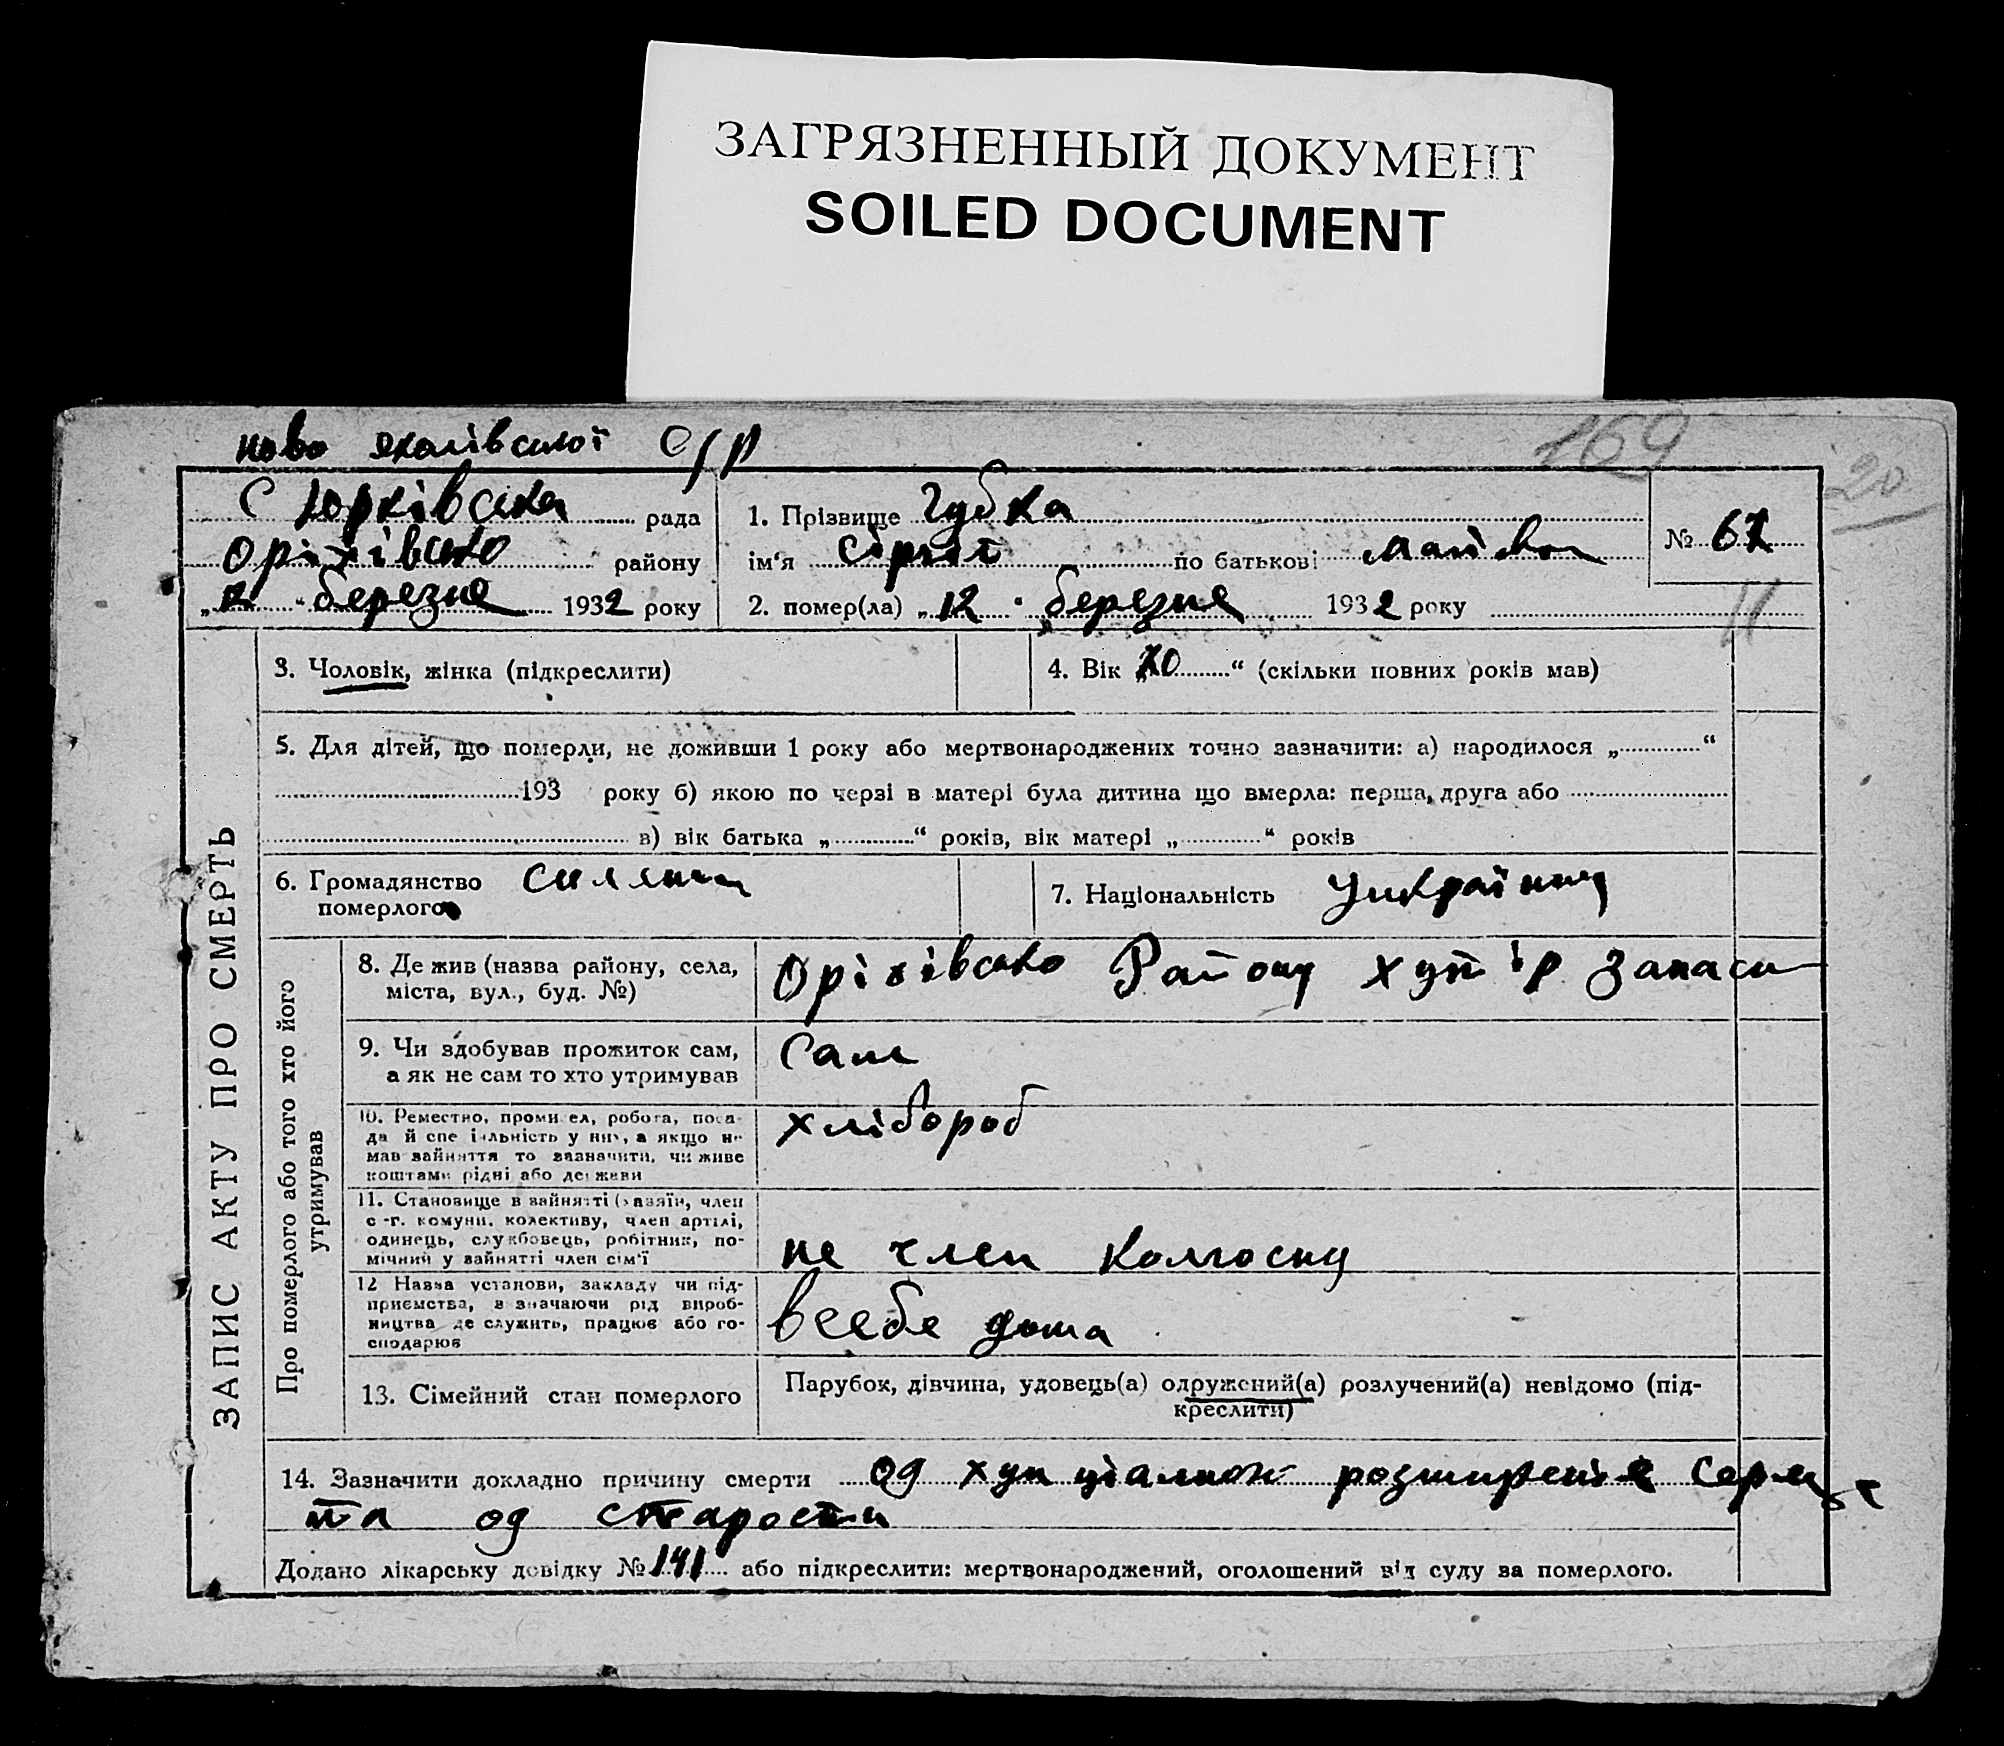 ЗАГРЯЗНЕННЫЙ ДОКУМЕНТ
SOILED DOCUMENT
169
20
ново с/р
С Юрківська рада
Оріхівсько району
„12“ березня 1932 року
1. Прізвище Губка
ім‘я по батькові
2. помер(ла) „12“ березня 1932 року
№ 67
ЗАПИС АКТУ ПРО СМЕРТЬ
3. Чоловік, жінка (підкреслити)
4. Вік „70“ (скільки повних років мав)
5. Для дітей, що померли, не доживши 1 року або мертвонароджених точно зазначити: а) народилося „ “
193 року б) якою по черзі в матері була дитина що вмерла: перша, друга або
в) вік батька „ “ років, вік матері „ “ років
6. Громадянство
померлого
7. Національність Украінец
Про померлого або того хто його
утримував
8. Де жив (назва району, села,
міста, вул., буд. №)
Оріхівсько Району хутір
9. Чи здобував прожиток сам,
а як не сам то хто утримував
Сам
10. Реместно, промисел, робота, поса-
да й спеціяльність у них, а якщо не
мав зайняття то зазначити, чи живе
коштами рідні або держави
хлібороб
11. Становище в зайнятті (хазяїн, член
с.-г. комуни, колективу, член артілі,
одинець, службовець, робітник, по-
мічний у зайнятті член сім'ї
не член колгоспу
12 Назва установи, закладу чи під-
приємства, зазначаючи рід вироб-
ництва де служить, працює або го-
сподарює
всебе дома
13. Сімейний стан померлого
Парубок, дівчина, удовець(а) одружений(а) розлучений(а) невідомо (під-
креслити)
14. Зазначити докладно причину смерти од розширенія серця
та од старости
Додано лікарську довідку № 141 або підкреслити: мертвонароджений, оголошений від суду за померлого.